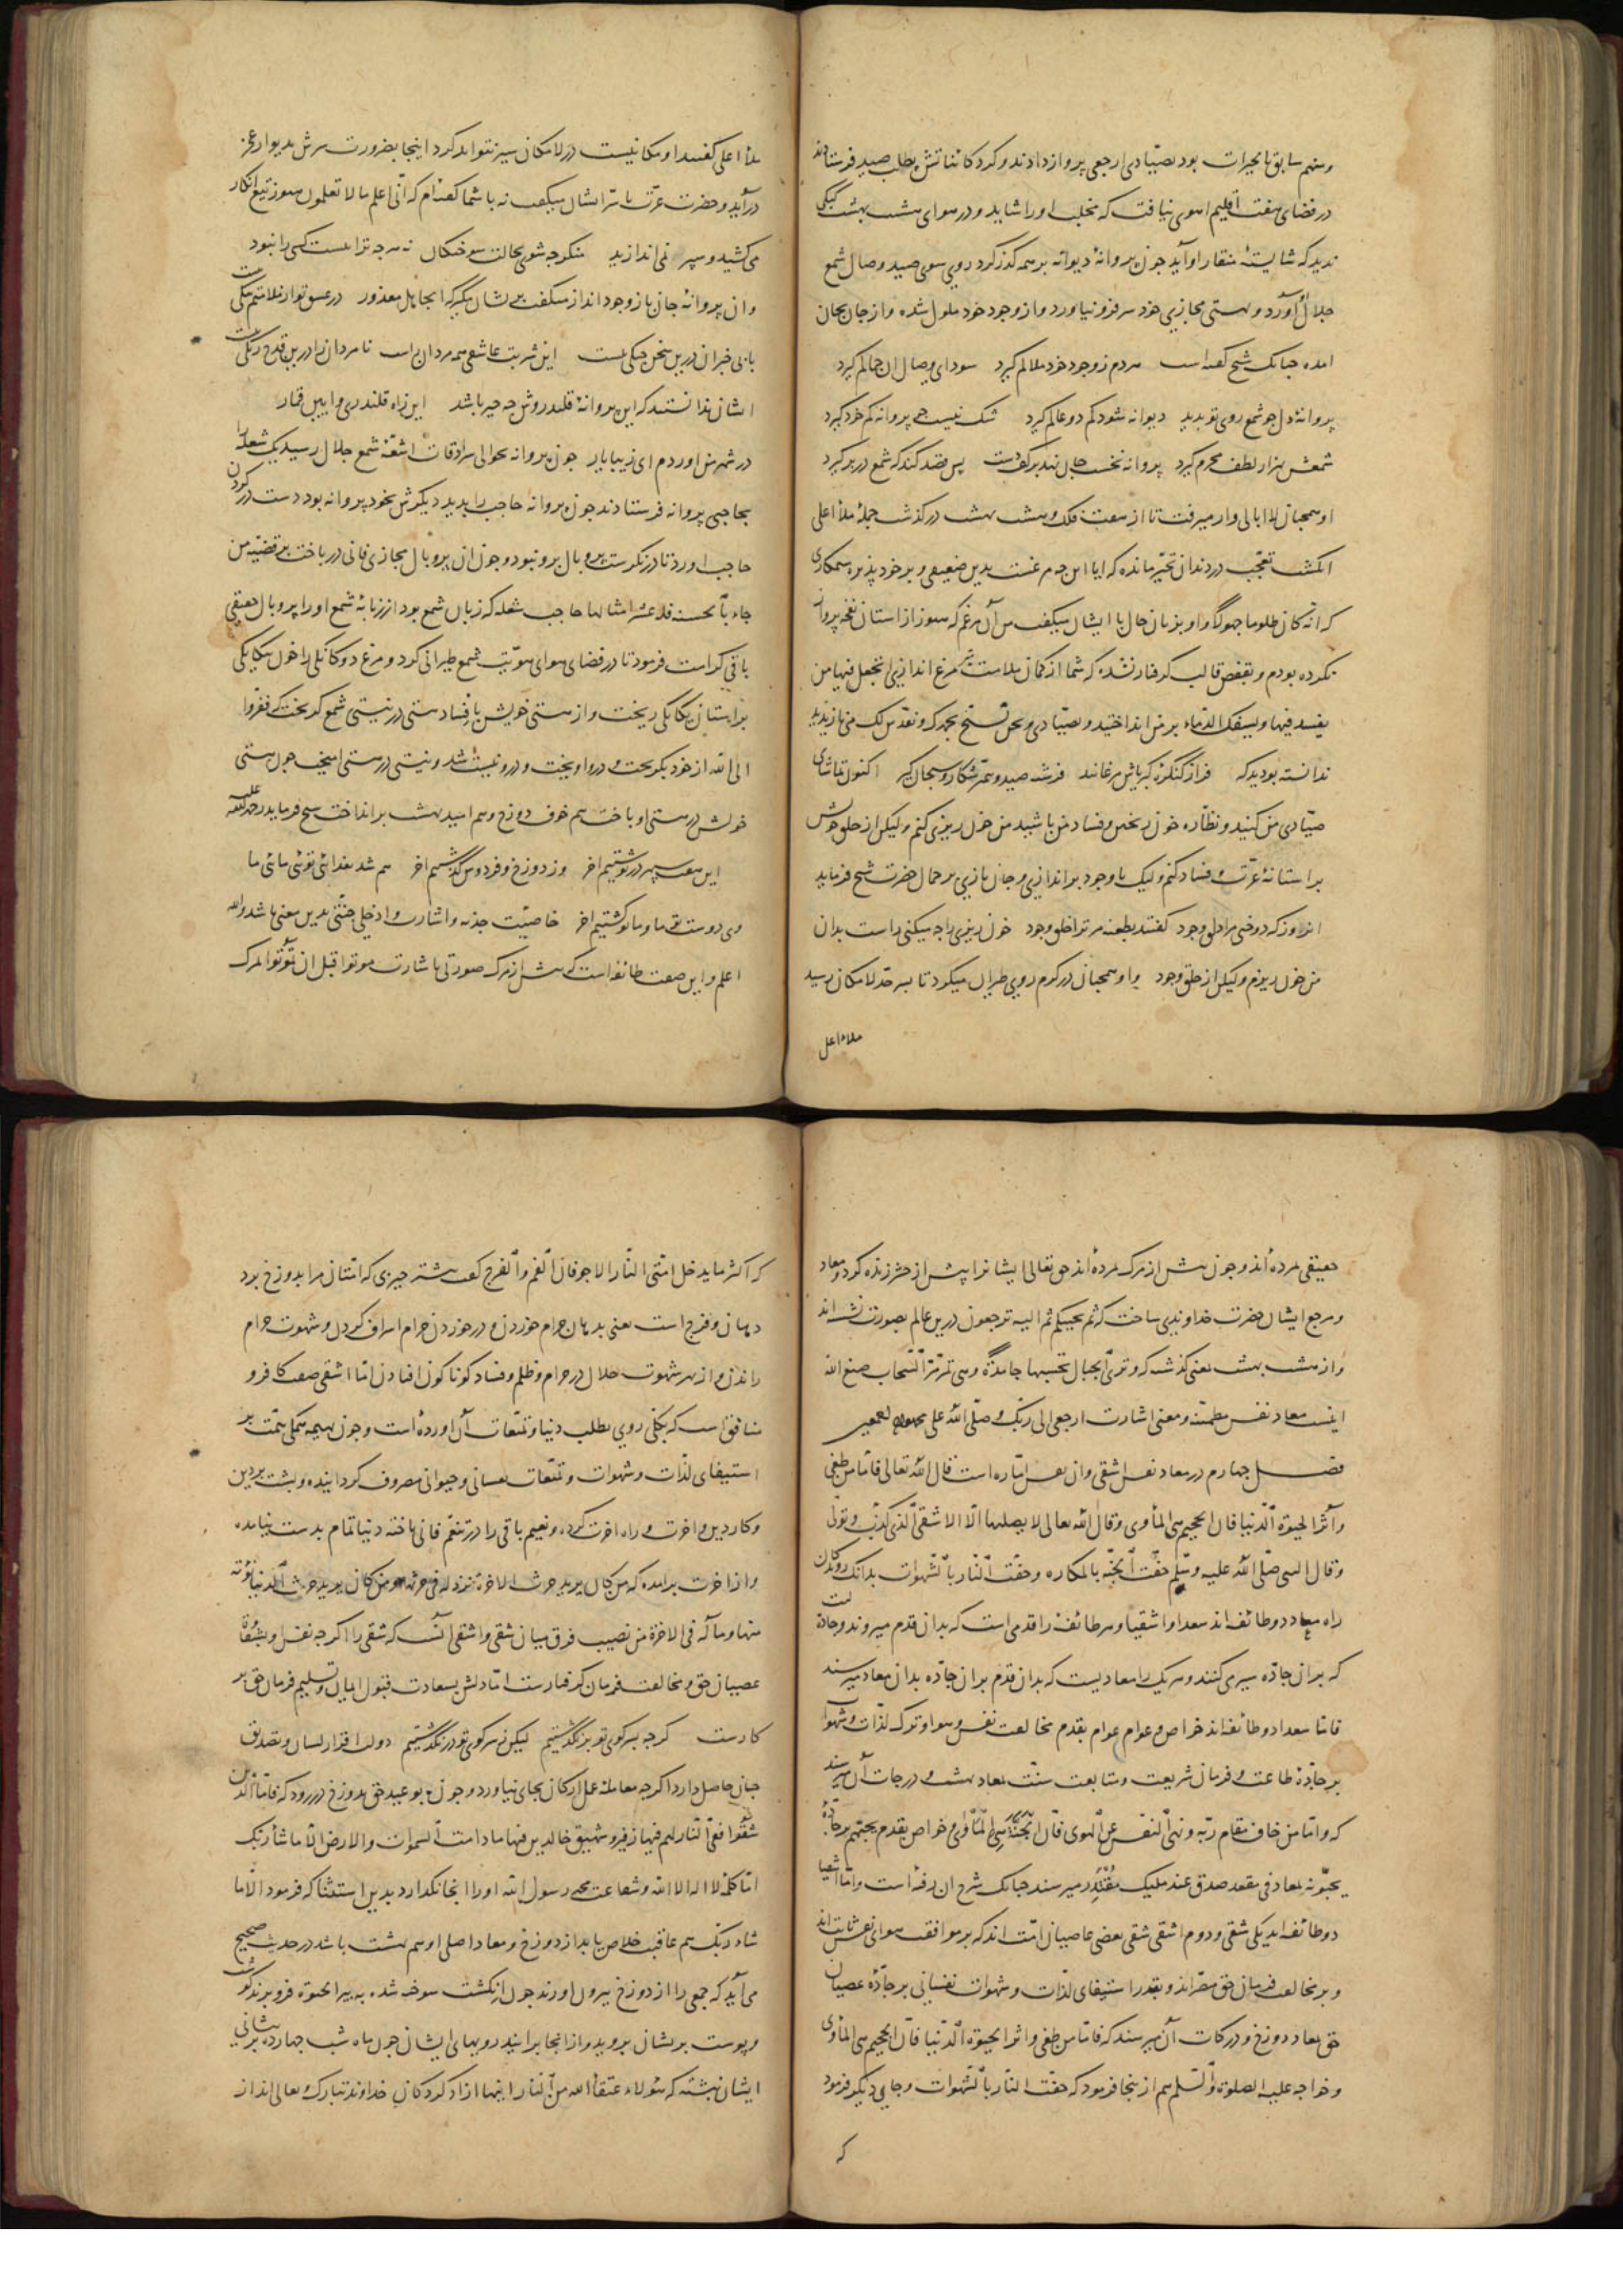 ومنهم سابق بالخیرات بود بصیادی ارجعی پرواز دادند و کرد کائناتش بطلب صید فرستادند
در فضای هفت اقلیم اهوی نیافت که مخلب اورا شاید و در هوای هشت بهشت کبکی
ندید که شایستهٔ منقار او آید چون پروانهٔ دیوانه بر همه گذر کرد روی سوی صید وصال شمع
جلال آورد و بهستی مجازی خود سر فرو نیاورد و از وجود خود ملول شده و از جان بجان
امده چنانک شیخ گفته است هر دم ز وجود خود ملالم گیرد سودای وصال ان جمالم گیرد
پروانهٔ دل چو شمع روی تو بدید دیوانه شود کم دو عالم گیرد شک نیست که پروانه کم خود گیرد
شمعش هزار لطف محرم گیرد پروانه نخست جان نهد بر کف دست پس قصد کند که شمع در بر گیرد
او همچنان لا ابالی وار میرفت تا از هفت فلک و هشت بهشت در گذشت جملهٔ ملأ اعلی
انکشت تعجب در دندان تحیر مانده که ایا این چه مرغست بدین ضعیفی و بر خود پذیره ستمکاری
که انه کان ظلوما جهولا و او بزبان حال با ایشان میگفت من آن مرغم که هنوز از استان نفخه پرواز
نکرده بودم و بقفص قالب گرفتار نشده که شما از کمان ملامت مرغ اندازی اتجعل فیها من
یفسد فیها ویسفک الدماء بر من انداختید و بصیادی و نحن نسبح بحمدک ونقدس لک می نازیدید
ندانسته بودید که فراز کنگرهٔ کبریاش مرغانند فرشته صید و پیمبر شکار و سبحان گیر اکنون تماشای
صیادی من کنید و نظاره خون ریختن و فساد من باشید من خون ریزی کنم ولیکن از حلق خویش
بر استانهٔ عزت و فساد کنم ولیک با وجود بر اندازی و جان بازی بر جمال حضرت شیخ فرماید
انروز که دوختی مرا دلق وجود گفتند بطعنه مر ترا خلق وجود خون ریزی را چه میکنی راست بدان
من خون ریزم ولیکن از حلق وجود و او همچنان در کرم روی طیران میکرد تا بسر حد لامکان رسید
ملاء اعل
ملأ اعلی گفتند او مکانیست در لامکان سیر نتواند کرد اینجا بضرورت سرش بدیوار عجز
در آید و حضرت عزت با سر ایشان میگفت نه با شما گفته‌ام که انی اعلم ما لا تعلمون هنوز تیغ انکار
می کشید و سپر نمی اندازید منکر چه شوی بحالت سوختگان نه هر چه تراست کسی را نبود
و ان پروانهٔ جان باز وجود انداز میگفت بی نشان مگیر که اینجا هل معذور در عشق تو ار ملامتم
با بی خبران درین سخن جنگی نیست این شربت عاشقی همه مردان راست نا مردان را درین قدح رنگی نیست
ایشان ندانستند که این پروانهٔ قلندروش چه چیز باشد این راه قلندری و این قمار
در شهر من اوردم ای زیبا یار چون پروانه بحوالی سرادقات اشعهٔ شمع جلال رسید یک شعله را
بحاجبی پروانه فرستادند چون پروانه حاجب را بدید دیگرش بخود پروانه بود دست در گردن
حاجب اورد تا در نگرست پر و بال برو نبود و چون ان پر و بال مجازی فانی در باخت بر قضیّه من
جاء بالحسنة فله عشر امثالها حاجب شعله که زبان شمع بود از زبانهٔ شمع او را پر و بال حقیقی
باقی کرامت فرمود تا در فضای هوای هویت شمع طیرانی کرد و مرغ دوگانگی را خون یگانگی
بر استان یکانگی ریخت و از هستی خویش بافساد هستی در نیستی شمع گریخت که ففروا
الی الله از خود بگریخت و در او اویخت و درو نیست شد و نیستی در هستی امیخت چون هستی
خویش در هستی او باخت هم خوف دوزخ و هم امید بهشت بر انداخت شیخ فرماید رحمه الله علیه
این هفت سپهر در نوشتیم اخر وز دوزخ و فردوس گذشتیم اخر هم شد فدائی توئی مائی ما
وی دوست تو ما و ما تو گشتیم اخر خاصیت جذبه و اشارت وادخلی جنتی بدین معنی باشد والله
اعلم و این صفت طائفه است که پیش از مرگ صورتی باشارت موتوا قبل ان تموتوا بمرگ
حقیقی مرده‌اند و چون پیش از مرگ بمرده‌اند حق تعالی ایشانرا پیش از حشر زنده کرد و معاد
و مرجع ایشان حضرت خداوندی ساخت که ثم یحییکم ثم الیه ترجعون درین عالم بصورت نشسته اند
و از هشت بهشت بمعنی گذشته که وتری الجبال تحسبها جامدة وهی تمر مر السحاب صنع الله
اینست معاد نفس مطمئنه و معنی اشارت ارجعی الی ربک وصلی الله علی محمد و اله اجمعین
فصل چهارم در معاد نفس اشقی و ان نفس اماره است قال الله تعالی فاما من طغی
وآثر الحیوة الدنیا فان الجحیم هی المأوی وقال الله تعالی لا یصلیها الا الاشقی الذی کذب وتولی
وقال النبی صلی الله علیه وسلم حفت الجنة بالمکاره وحفت النار بالشهوات بدانک روندگان
راه معاد دو طائفه اند سعدا و اشقیا و هر طائفه را قدمی است که بدان قدم میروند و جاده‌ایست
که بر ان جاده سیر می کنند و هر یک را معادیست که بدان قدم بران جاده بدان معاد میرسند
فاما سعدا دو طائفه اند خواص و عوام عوام بقدم مخالفت نفس و هوا و ترک لذات و شهوات
بر جادهٔ طاعت و فرمان شریعت و متابعت سنت بمعاد بهشت و درجات آن میرسند
که واما من خاف مقام ربه ونهی النفس عن الهوی فان الجنة هی المأوی و خواص بقدم یحبهم بر جادهٔ
یحبونه بمعاد فی مقعد صدق عند ملیک مقتدر میرسند چنانک شرح ان رفته است و اما اشقیا
دو طائفه اند یکی شقی و دوم اشقی شقی بعضی عاصیان امت اند که بر موافقت هوای نفس ثابت اند
و بر مخالفت فرمان حق مصر اند و بقدر استیفای لذات و شهوات نفسانی بر جادهٔ عصیان
حق بمعاد دوزخ و درکات آن میرسند که فاما من طغی واثر الحیوة الدنیا فان الجحیم هی المأوی
و خواجه علیه الصلوة والسلم هم ازینجا فرمود که حفت النار بالشهوات و جایی دیگر فرمود
که
که اکثر ما یدخل امتی النار الاجوفان الفم والفرج گفت بیشتر چیزی که امتان مرا بدوزخ برد
دهان و فرج است یعنی بدهان حرام خوردن و در خوردن حرام اسراف کردن و شهوت حرام
راندن و از بهر شهوت حلال در حرام و ظلم و فساد گوناگون افتادن اما اشقی صفت کافر و
منافق است که بکلی روی بطلب دنیا و تمتعات آن اورده است و چون بهیمه همگی همت بر
استیفای لذات و شهوات و تمتعات نفسانی و حیوانی مصروف گردانیده و پشت بر دین
و کار دین و اخرت و راه اخرت کرده و نعیم باقی را در تنعم فانی باخته دنیا تمام بدست نیامده
و از اخرت برامده که من کان یرید حرث الاخرة نزد له فی حرثه ومن کان یرید حرث الدنیا نؤته
منها وما له فی الاخرة من نصیب فرق میان شقی و اشقی انست که شقی را اگر چه نفس او بشقاوت
عصیان حق و مخالفت فرمان گرفتارست اما دلش بسعادت قبول ایمان و تسلیم فرمان حق بر
کارست گر چه بسر کوی تو بر نگذشتیم لیکن ز سر کوی تو در نگذشتیم دولت اقرار لسان و تصدیق
جنان حاصل دارد اگر چه معاملهٔ عمل ارکان بجای نیاورد و چون بوعید حق بدوزخ در رود که فاما الذین
شقوا ففی النار لهم فیها زفیر وشهیق خالدین فیها ما دامت السموات والارض الا ما شاء ربک
اما کلمه لا اله الا الله وشفاعت محمد رسول الله او را انجا نگذارد بدین استثنا که فرمود الا ما
شاء ربک هم عاقبت خلاص یابد از دوزخ و معاد اصلی او هم بهشت باشد در حدیث صحیح
می آید که جمعی را از دوزخ بیرون اورند چون انگشت سوخته شده به بیر الحیوة فرو برند گوشت
و پوست بریشان بروید و از انجا برایند رویهای ایشان چون ماه شب چهارده بر پیشانی
ایشان نبشته که هؤلاء عتقاء الله من النار اینها ازاد کردگان خداوند تبارک و تعالی اند از